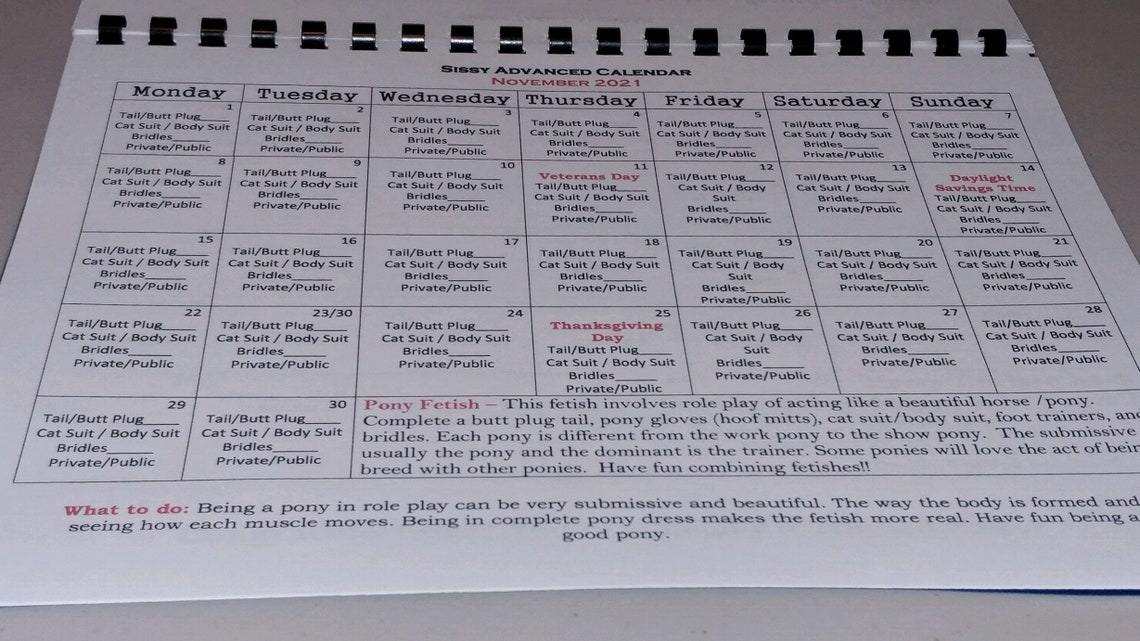 SISSY ADVANCED CALENDAR
NOVEMBER 2021
Monday Tuesday Wednesday Thursday Friday Saturday Sunday
1
Tail/Butt Plug_____
Cat Suit / Body Suit
Bridles_______
Private/Public
2
Tail/Butt Plug_____
Cat Suit / Body Suit
Bridles_______
Private/Public
3
Tail/Butt Plug_____
Cat Suit / Body Suit
Bridles_______
Private/Public
4
Tail/Butt Plug_____
Cat Suit / Body Suit
Bridles_______
Private/Public
5
Tail/Butt Plug_____
Cat Suit / Body Suit
Bridles_______
Private/Public
6
Tail/Butt Plug_____
Cat Suit / Body Suit
Bridles_______
Private/Public
7
Tail/Butt Plug_____
Cat Suit / Body Suit
Bridles_______
Private/Public
8
Tail/Butt Plug_____
Cat Suit / Body Suit
Bridles_______
Private/Public
9
Tail/Butt Plug_____
Cat Suit / Body Suit
Bridles_______
Private/Public
10
Tail/Butt Plug_____
Cat Suit / Body Suit
Bridles_______
Private/Public
11
Veterans Day
Tail/Butt Plug_____
Cat Suit / Body Suit
Bridles_______
Private/Public
12
Tail/Butt Plug_____
Cat Suit / Body
Suit
Bridles_______
Private/Public
13
Tail/Butt Plug_____
Cat Suit / Body Suit
Bridles_______
Private/Public
14
Daylight
Savings Time
Tail/Butt Plug_____
Cat Suit / Body Suit
Bridles_______
Private/Public
15
Tail/Butt Plug_____
Cat Suit / Body Suit
Bridles_______
Private/Public
16
Tail/Butt Plug_____
Cat Suit / Body Suit
Bridles_______
Private/Public
17
Tail/Butt Plug_____
Cat Suit / Body Suit
Bridles_______
Private/Public
18
Tail/Butt Plug_____
Cat Suit / Body Suit
Bridles_______
Private/Public
19
Tail/Butt Plug_____
Cat Suit / Body
Suit
Bridles_______
Private/Public
20
Tail/Butt Plug_____
Cat Suit / Body Suit
Bridles_______
Private/Public
21
Tail/Butt Plug_____
Cat Suit / Body Suit
Bridles_______
Private/Public
22
Tail/Butt Plug_____
Cat Suit / Body Suit
Bridles_______
Private/Public
23/30
Tail/Butt Plug_____
Cat Suit / Body Suit
Bridles_______
Private/Public
24
Tail/Butt Plug_____
Cat Suit / Body Suit
Bridles_______
Private/Public
25
Thanksgiving
Day
Tail/Butt Plug_____
Cat Suit / Body Suit
Bridles_______
Private/Public
26
Tail/Butt Plug_____
Cat Suit / Body
Suit
Bridles_______
Private/Public
27
Tail/Butt Plug_____
Cat Suit / Body Suit
Bridles_______
Private/Public
28
Tail/Butt Plug_____
Cat Suit / Body Suit
Bridles_______
Private/Public
29
Tail/Butt Plug_____
Cat Suit / Body Suit
Bridles_______
Private/Public
30
Tail/Butt Plug_____
Cat Suit / Body Suit
Bridles_______
Private/Public
Pony Fetish – This fetish involves role play of acting like a beautiful horse /pony.
Complete a butt plug tail, pony gloves (hoof mitts), cat suit/body suit, foot trainers, and
bridles. Each pony is different from the work pony to the show pony. The submissive
usually the pony and the dominant is the trainer. Some ponies will love the act of bein
breed with other ponies. Have fun combining fetishes!!
What to do: Being a pony in role play can be very submissive and beautiful. The way the body is formed and
seeing how each muscle moves. Being in complete pony dress makes the fetish more real. Have fun being a
good pony.